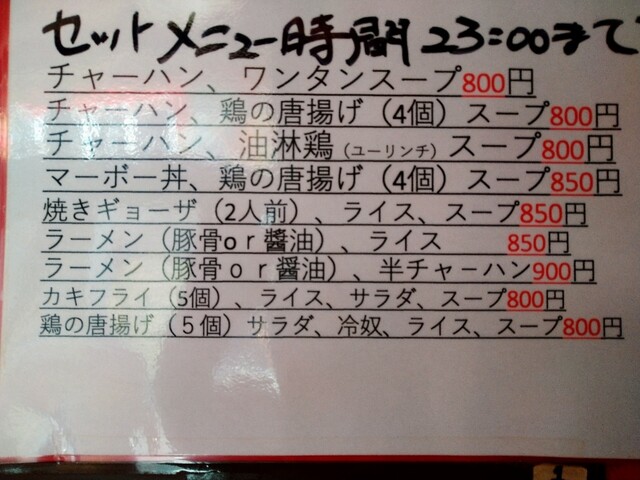 セットメニュー時間 23:00まで
チャーハン、ワンタンスープ800円
チャーハン、鶏の唐揚げ（4個）スープ800円
チャーハン、油淋鶏（ユーリンチ）スープ800円
マーボー丼、鶏の唐揚げ（4個）スープ850円
焼きギョーザ（2人前）、ライス、スープ850円
ラーメン（豚骨or醬油）、ライス 850円
ラーメン（豚骨ｏｒ醤油）、半チャーハン900円
カキフライ（5個）、ライス、サラダ、スープ800円
鶏の唐揚げ（５個）サラダ、冷奴、ライス、スープ800円